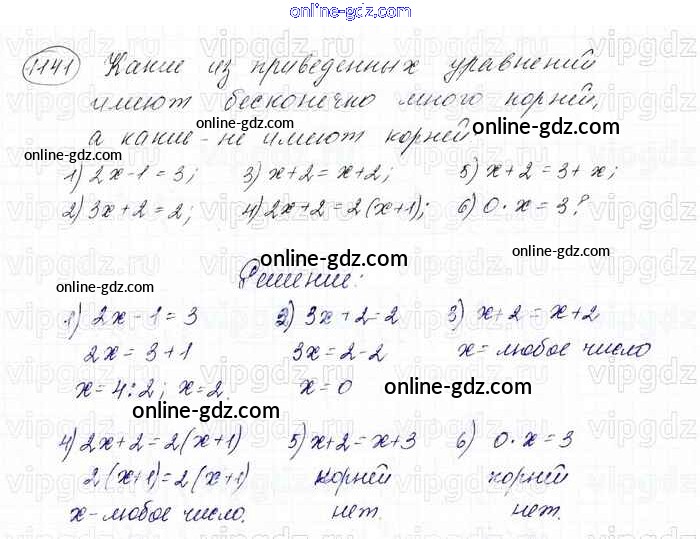 online-gdz.com
1141 Какие из приведенных уравнений
имеют бесконечно много корней,
а какие - не имеют корней
online-gdz.com online-gdz.com online-gdz.com
1) 2x-1=3; 3) x+2=x+2; 5) x+2=3+x;
2) 3x+2=2; 4) 2x+2=2(x+1); 6) 0·x=3?
online-gdz.com online-gdz.com online-gdz.com
Решение:
online-gdz.com
1) 2x-1=3 2) 3x+2=2 3) x+2=x+2
2x=3+1 3x=2-2 x=любое число
x=4:2; x=2. x=0 online-gdz.com
online-gdz.com
4) 2x+2=2(x+1) 5) x+2=x+3 6) 0·x=3
2(x+1)=2(x+1) корней корней
x-любое число. нет. нет.
vipgdz.ru